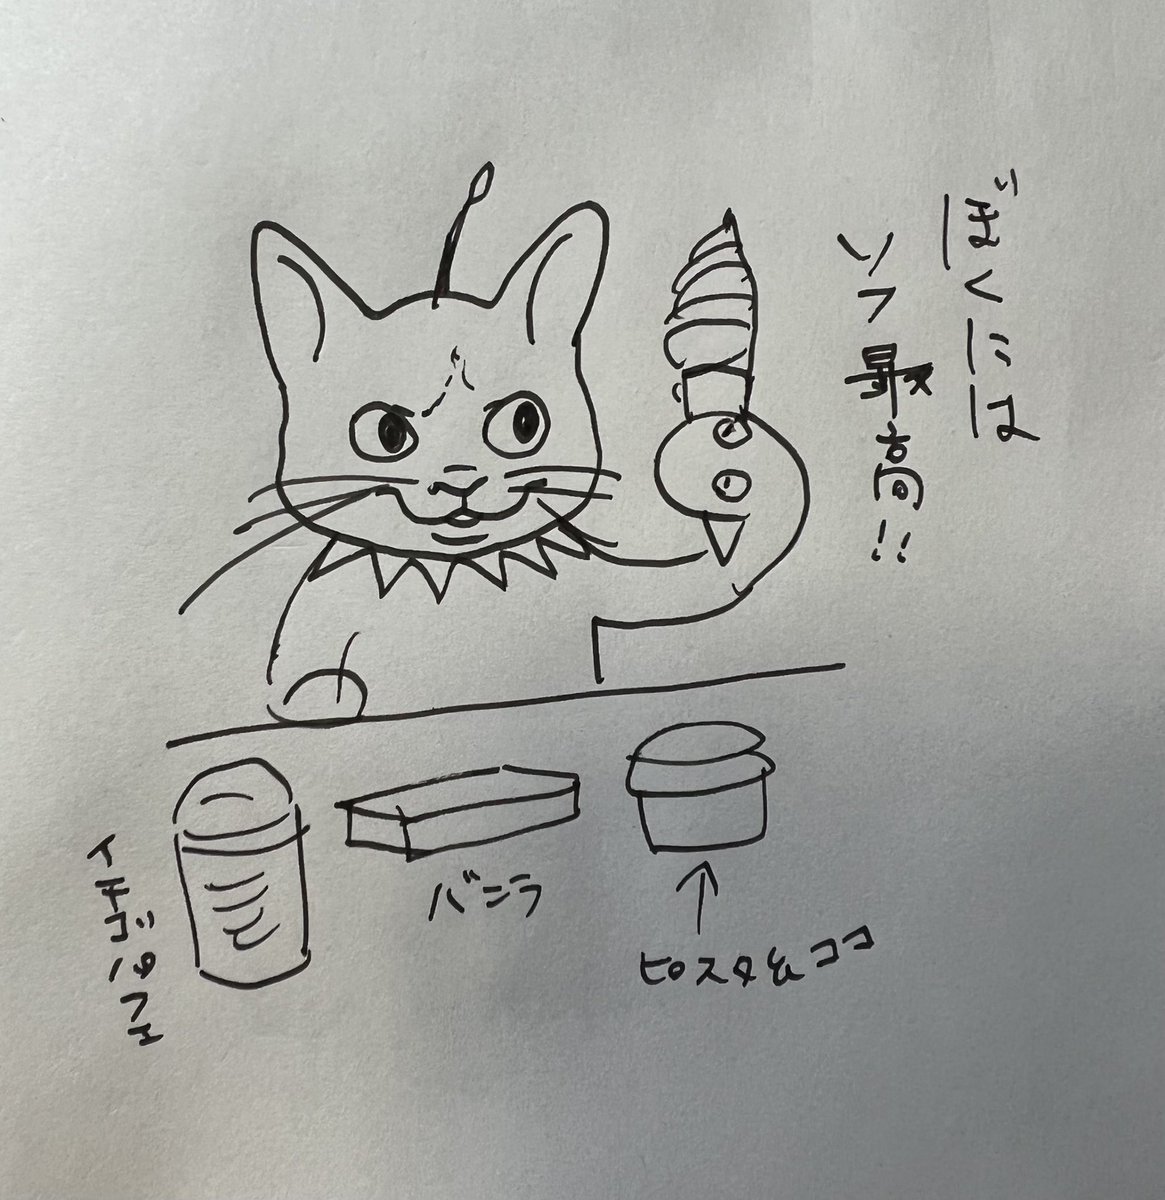 ぼくには
ソフ最高!!
イチゴパフェ
バニラ
ピスタ&ココ